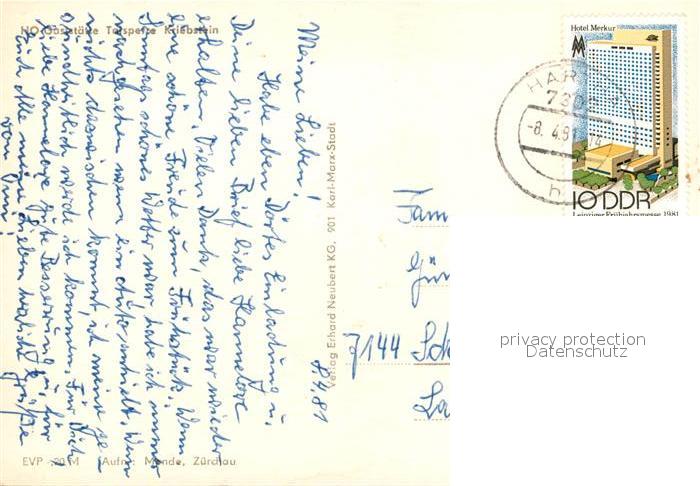 HO-Gaststätte Talsperre Kriebstein
8.4.81
Meine Lieben!
Habe eben Dörtes Einladung u.
Deine lieben Brief liebe Hannelore
erhalten. Vielen Dank, das war wieder
eine schöne Freude zum Frühstück. Wenn
schönes Wetter war habe ich immer
nachgesehen wenn ein Auto anhielt. Wenn
nichts dazwischen kommt, ich meine ge-
sundheitlich werde ich kommen. Für Dich
liebe Hannelore gute Besserung u. für
Euch Alle meine Lieben herzliche Grüße
von
EVP -,20 M Aufn.: Mende, Zürchau
Verlag Erhard Neubert KG, 901 Karl-Marx-Stadt
Hotel Merkur
MM
10 DDR
Leipziger Frühjahrsmesse 1981
HAR
730
-8. 4.8
Fam
Gün
7144 Sch
La
privacy protection
Datenschutz